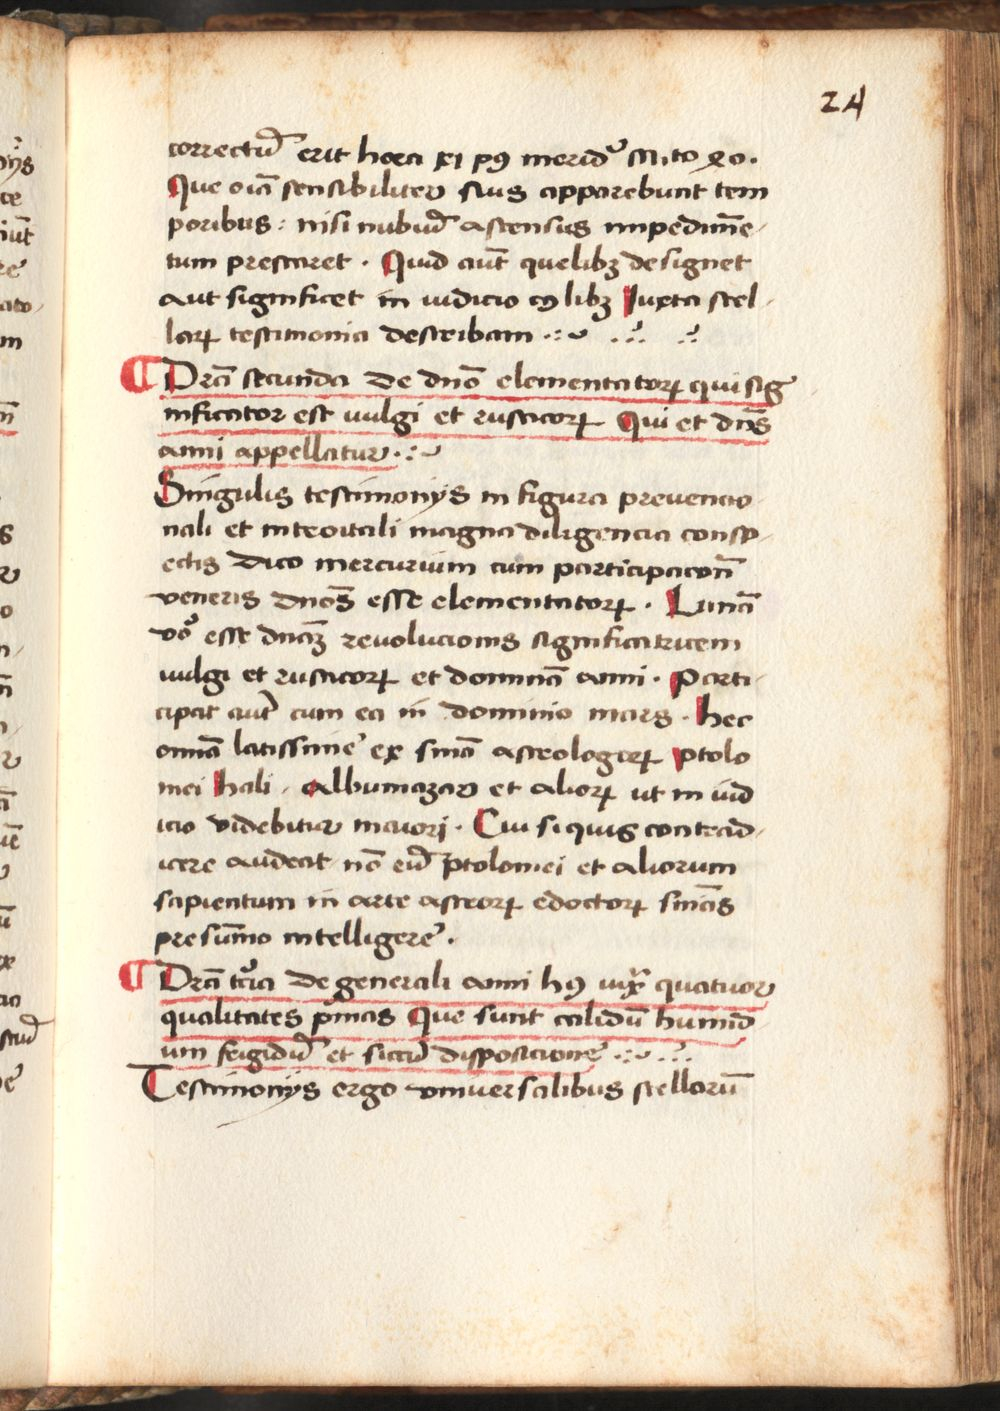 24
correctū erit hora xi pꝰ merid᷒ Mito 20.
Que oīa sensibiliter suis apparebunt tem
poribus : nisi nubiū ascensus impedimē-
tum prestaret . Quid aūt quelibꝫ designet
aut significet in iudicio cꝰlibꝫ Iuxta stel-
larꝝ testimonia describam
Drā secunda de dnō elementatorꝝ qui sig
nificator est vulgi et rusticorꝝ Qui et dn̄s
anni appellatur
Singulis testimonijs in figura prevencio
nali et introitali magna diligencia consp-
ectis dico mercurium cum participacōn
veneris dnōs esse elementatorꝝ . Lunā
vͦo esse dnāꝫ revolucionis significatricem
vulgi et rusticorꝝ et dominā anni . Parti-
cipat aūt cum ea in dominio mars . hec
omnīa latissime ex sniā astrologorꝝ ptolo
mei hali . Albumazar et aliorꝝ ut in iud
icio videbitur maiori . Cui si quis contrad-
icere audeat nō eū ptolomei et aliorum
sapientum in arte astrorꝝ edoctorꝝ sniās
presumō intelligere .
Drā tͨia de generali anni hꝰ iuxͣ quatuor
qualitates pͥmas Que sunt calidū humid
um frigidū et siccū disposicione
Testimonijs ergo universalibus stellarū